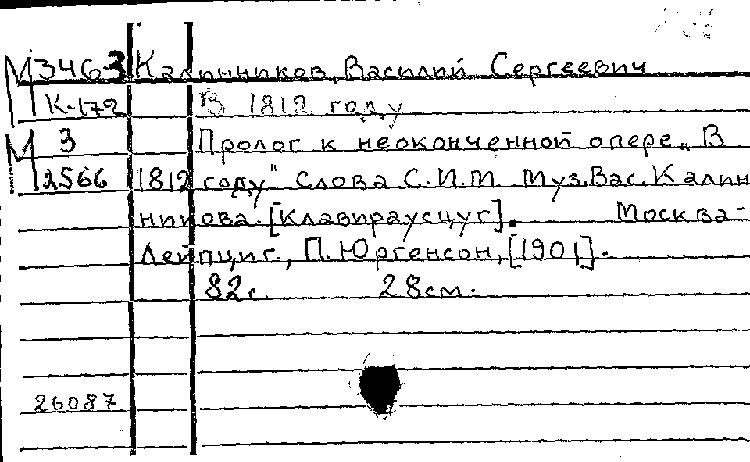 М3463 Калинников, Василий Сергеевич
К-172 В 1812 году
М 3 Пролог к неоконченной опере „В
2566 1812 году" Слова С.И.М. Муз. Вас. Калин
никова. [Клавираусцуг]. Москва-
Лейпциг, П. Юргенсон, [1901].
82с. 28см.
26087